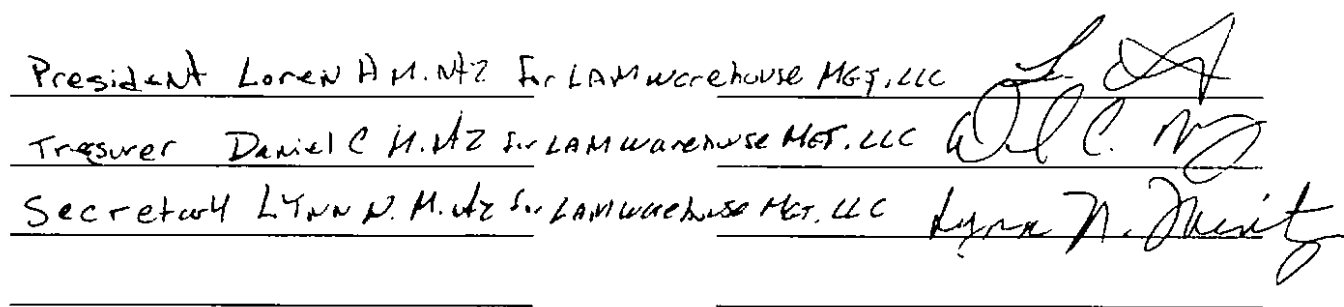 President Loren A Mintz for LAM warehouse MGT, LLC
Treasurer Daniel C Mintz for LAM warehouse MGT, LLC
Secretary LYNN N. Mintz for LAM warehouse MGT, LLC Lynn N. Mintz